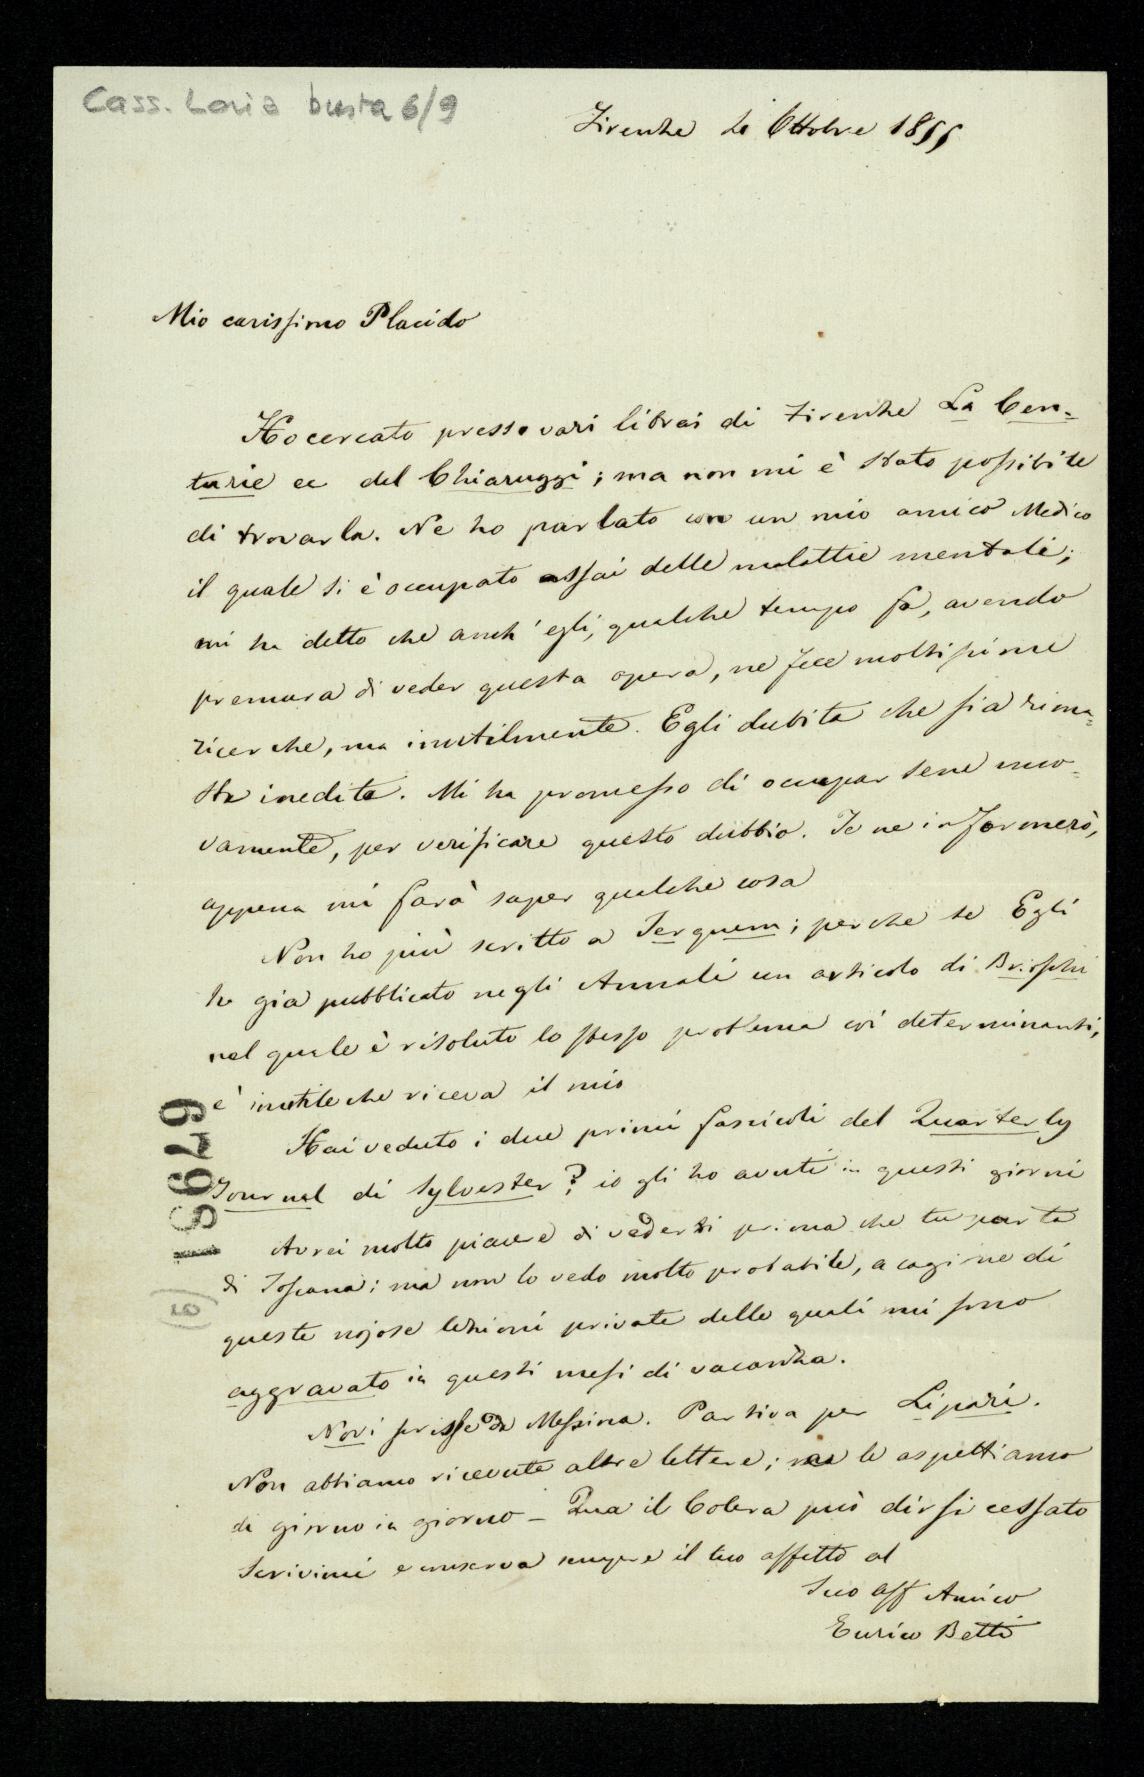 Cass. Loria busta 6/9
Firenze 20 Ottobre 1855
Mio carissimo Placido
Ho cercato presso vari librai di Firenze La Cen-
turie ec del Chiaruggi; ma non mi è stato possibile
di trovarla. Ne ho parlato con un mio amico Medico
il quale si è occupato assai delle malattie mentali;
mi ha detto che anch'egli, qualche tempo fa, avendo
premura di veder questa opera, ne fece moltissime
ricerche, ma inutilmente. Egli dubita che sia rima=
sta inedita. Mi ha promesso di occuparsene nuo=
vamente, per verificare questo dubbio. Te ne informerò,
appena mi farà saper qualche cosa
Non ho più scritto a Terquem; perche se Egli
ha già pubblicato negli Annali un articolo di Brioschi
nel quale è risoluto lo stesso problema coi determinanti,
è inutile che riceva il mio
Hai veduto i due primi fascicoli del Quarterly
Journal di Sylvester? io gli ho avuti in questi giorni
Avrei molto piacere di vederti prima che tu parta
di Toscana; ma non lo vedo molto probabile, a cagione di
queste nojose lezioni private delle quali mi sono
aggravato in questi mesi di vacanza.
Novi scrisse da Messina. Partiva per Lipari.
Non abbiamo ricevute altre lettere; ma le aspettiamo
di giorno in giorno – Qua il Colera può dirsi cessato
Scrivimi e conserva sempre il tuo affetto al
Tuo Aff Amico
Enrico Betti
67951
(5)